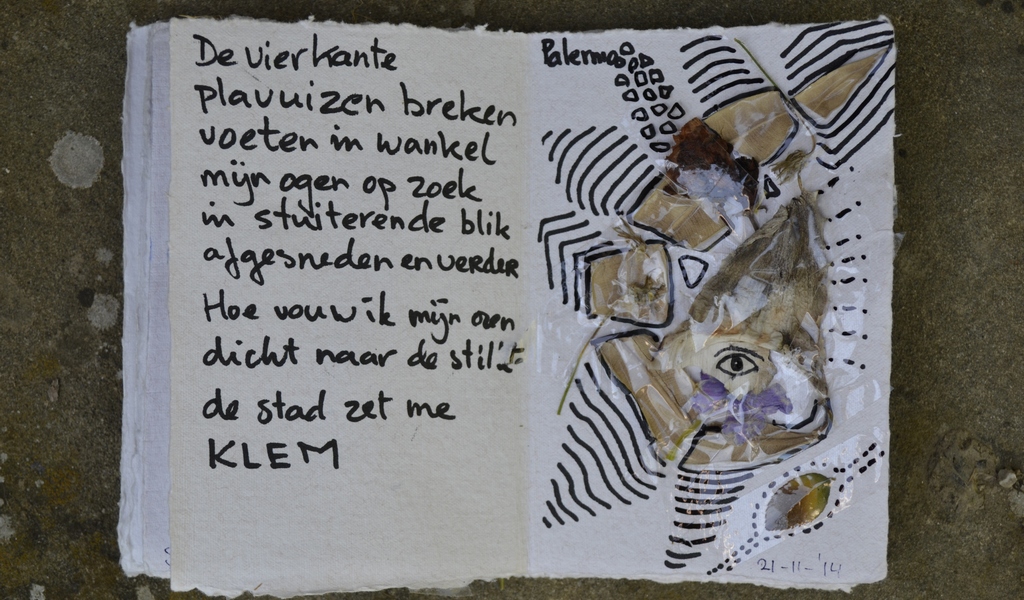 De vierkante
plavuizen breken
voeten in wankel
mijn ogen op zoek
in stuiterende blik
afgesneden en verder
Hoe vouw ik mijn oren
dicht naar de stilte
de stad zet me
KLEM
Palermo
21-11-'14